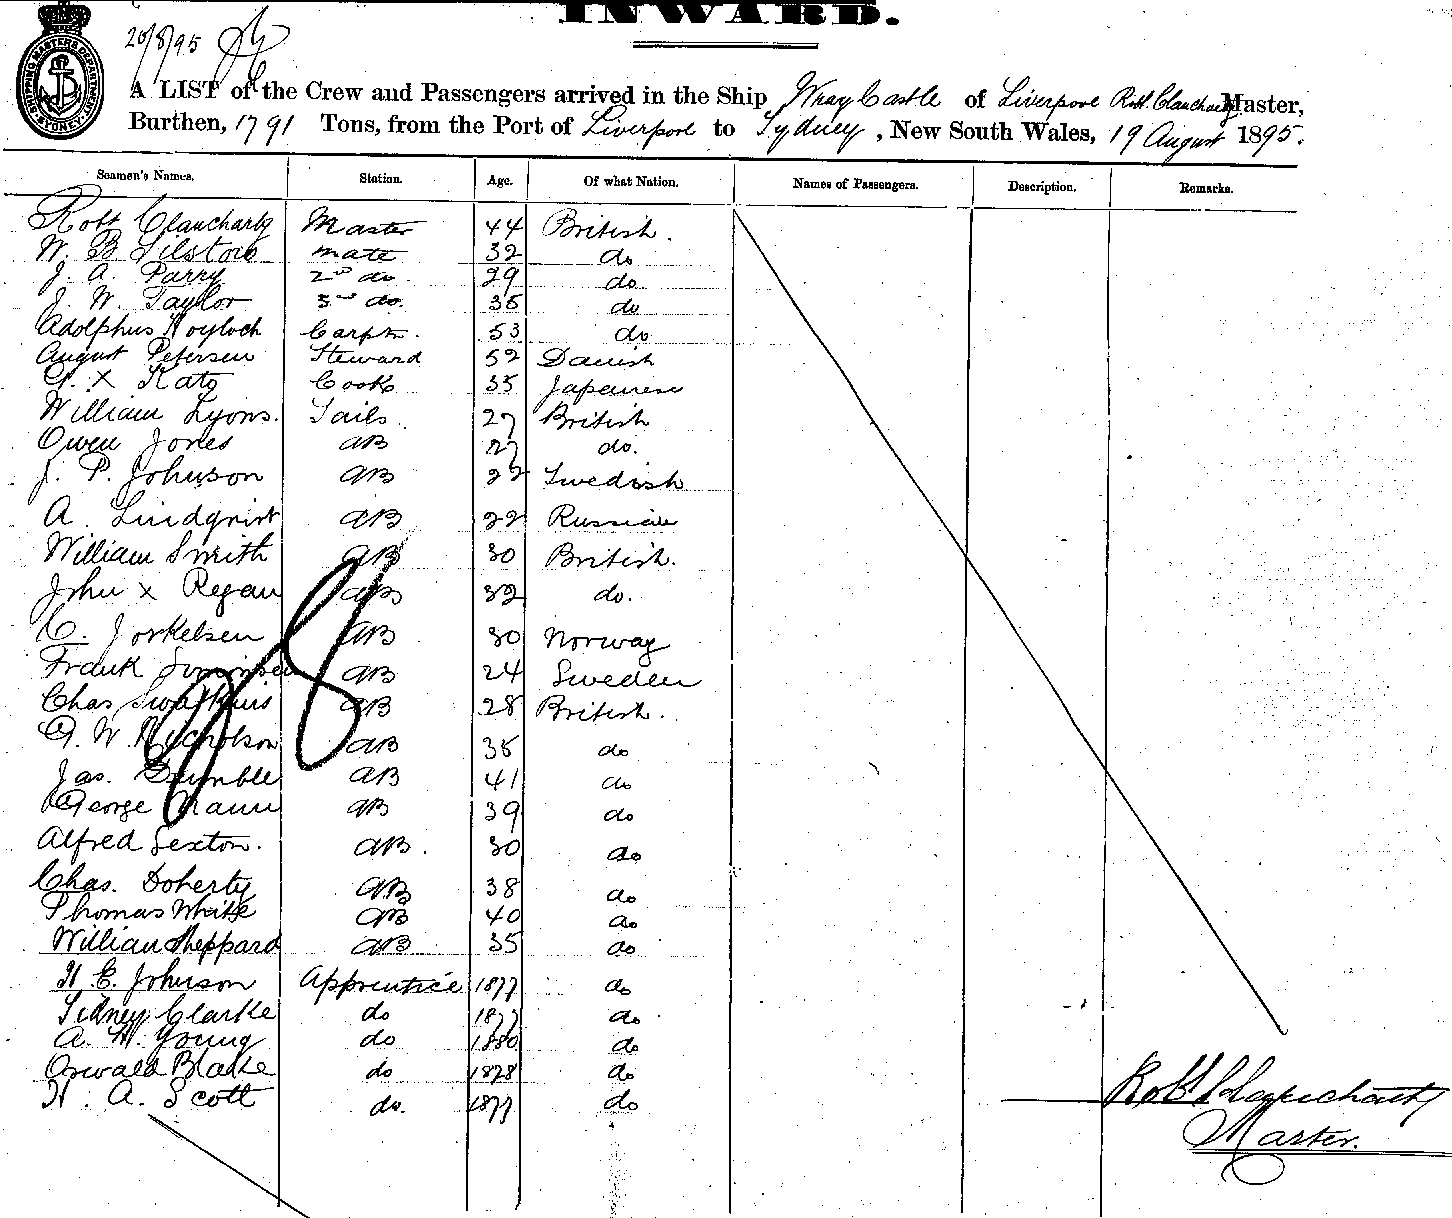 INWARD.
SHIPPING MASTER'S DEPARTMENT SYDNEY
20/8/95
A LIST of the Crew and Passengers arrived in the Ship Wray Castle of Liverpool Robt Clanchary Master,
Burthen, 1791 Tons, from the Port of Liverpool to Sydney, New South Wales, 19 August 1895.
Seamen's Names. Station. Age. Of what Nation. Names of Passengers. Description. Remarks.
Robt Clanchary Master 44 British.
W. B Tilston mate 32 do
J. A. Parry 2nd do 29 do
J. W. Taylor 3rd do. 35 do
Adolphus Carptr. 53 do
August Petersen Steward 52 Danish
X Kato Cook 35 Japanese
William Lyons. Sails 27 British
Owen Jones AB 27 do.
J. P. Johnson AB 22 Swedish
A. Lindqvist AB 22 Russian
William Smith AB 30 British.
John X Regan AB 32 do.
C. Torkelsen AB 30 Norway
Frank AB 24 Sweden
Chas AB 28 British.
W. Nicholson AB 35 do
Jas. AB 41 do
George Mann AB 39 do
Alfred Sexton. AB. 30 do
Chas. Doherty AB 38 do
Thomas White AB 40 do
William Sheppard AB 35 do
H. E. Johnson Apprentice 1877 do
Sidney Clarke do 1877 do
A. H. Young do 1880 do
Oswald Blake do 1878 do
H. A. Scott do. 1877 do
Robt Clanchary
Master.